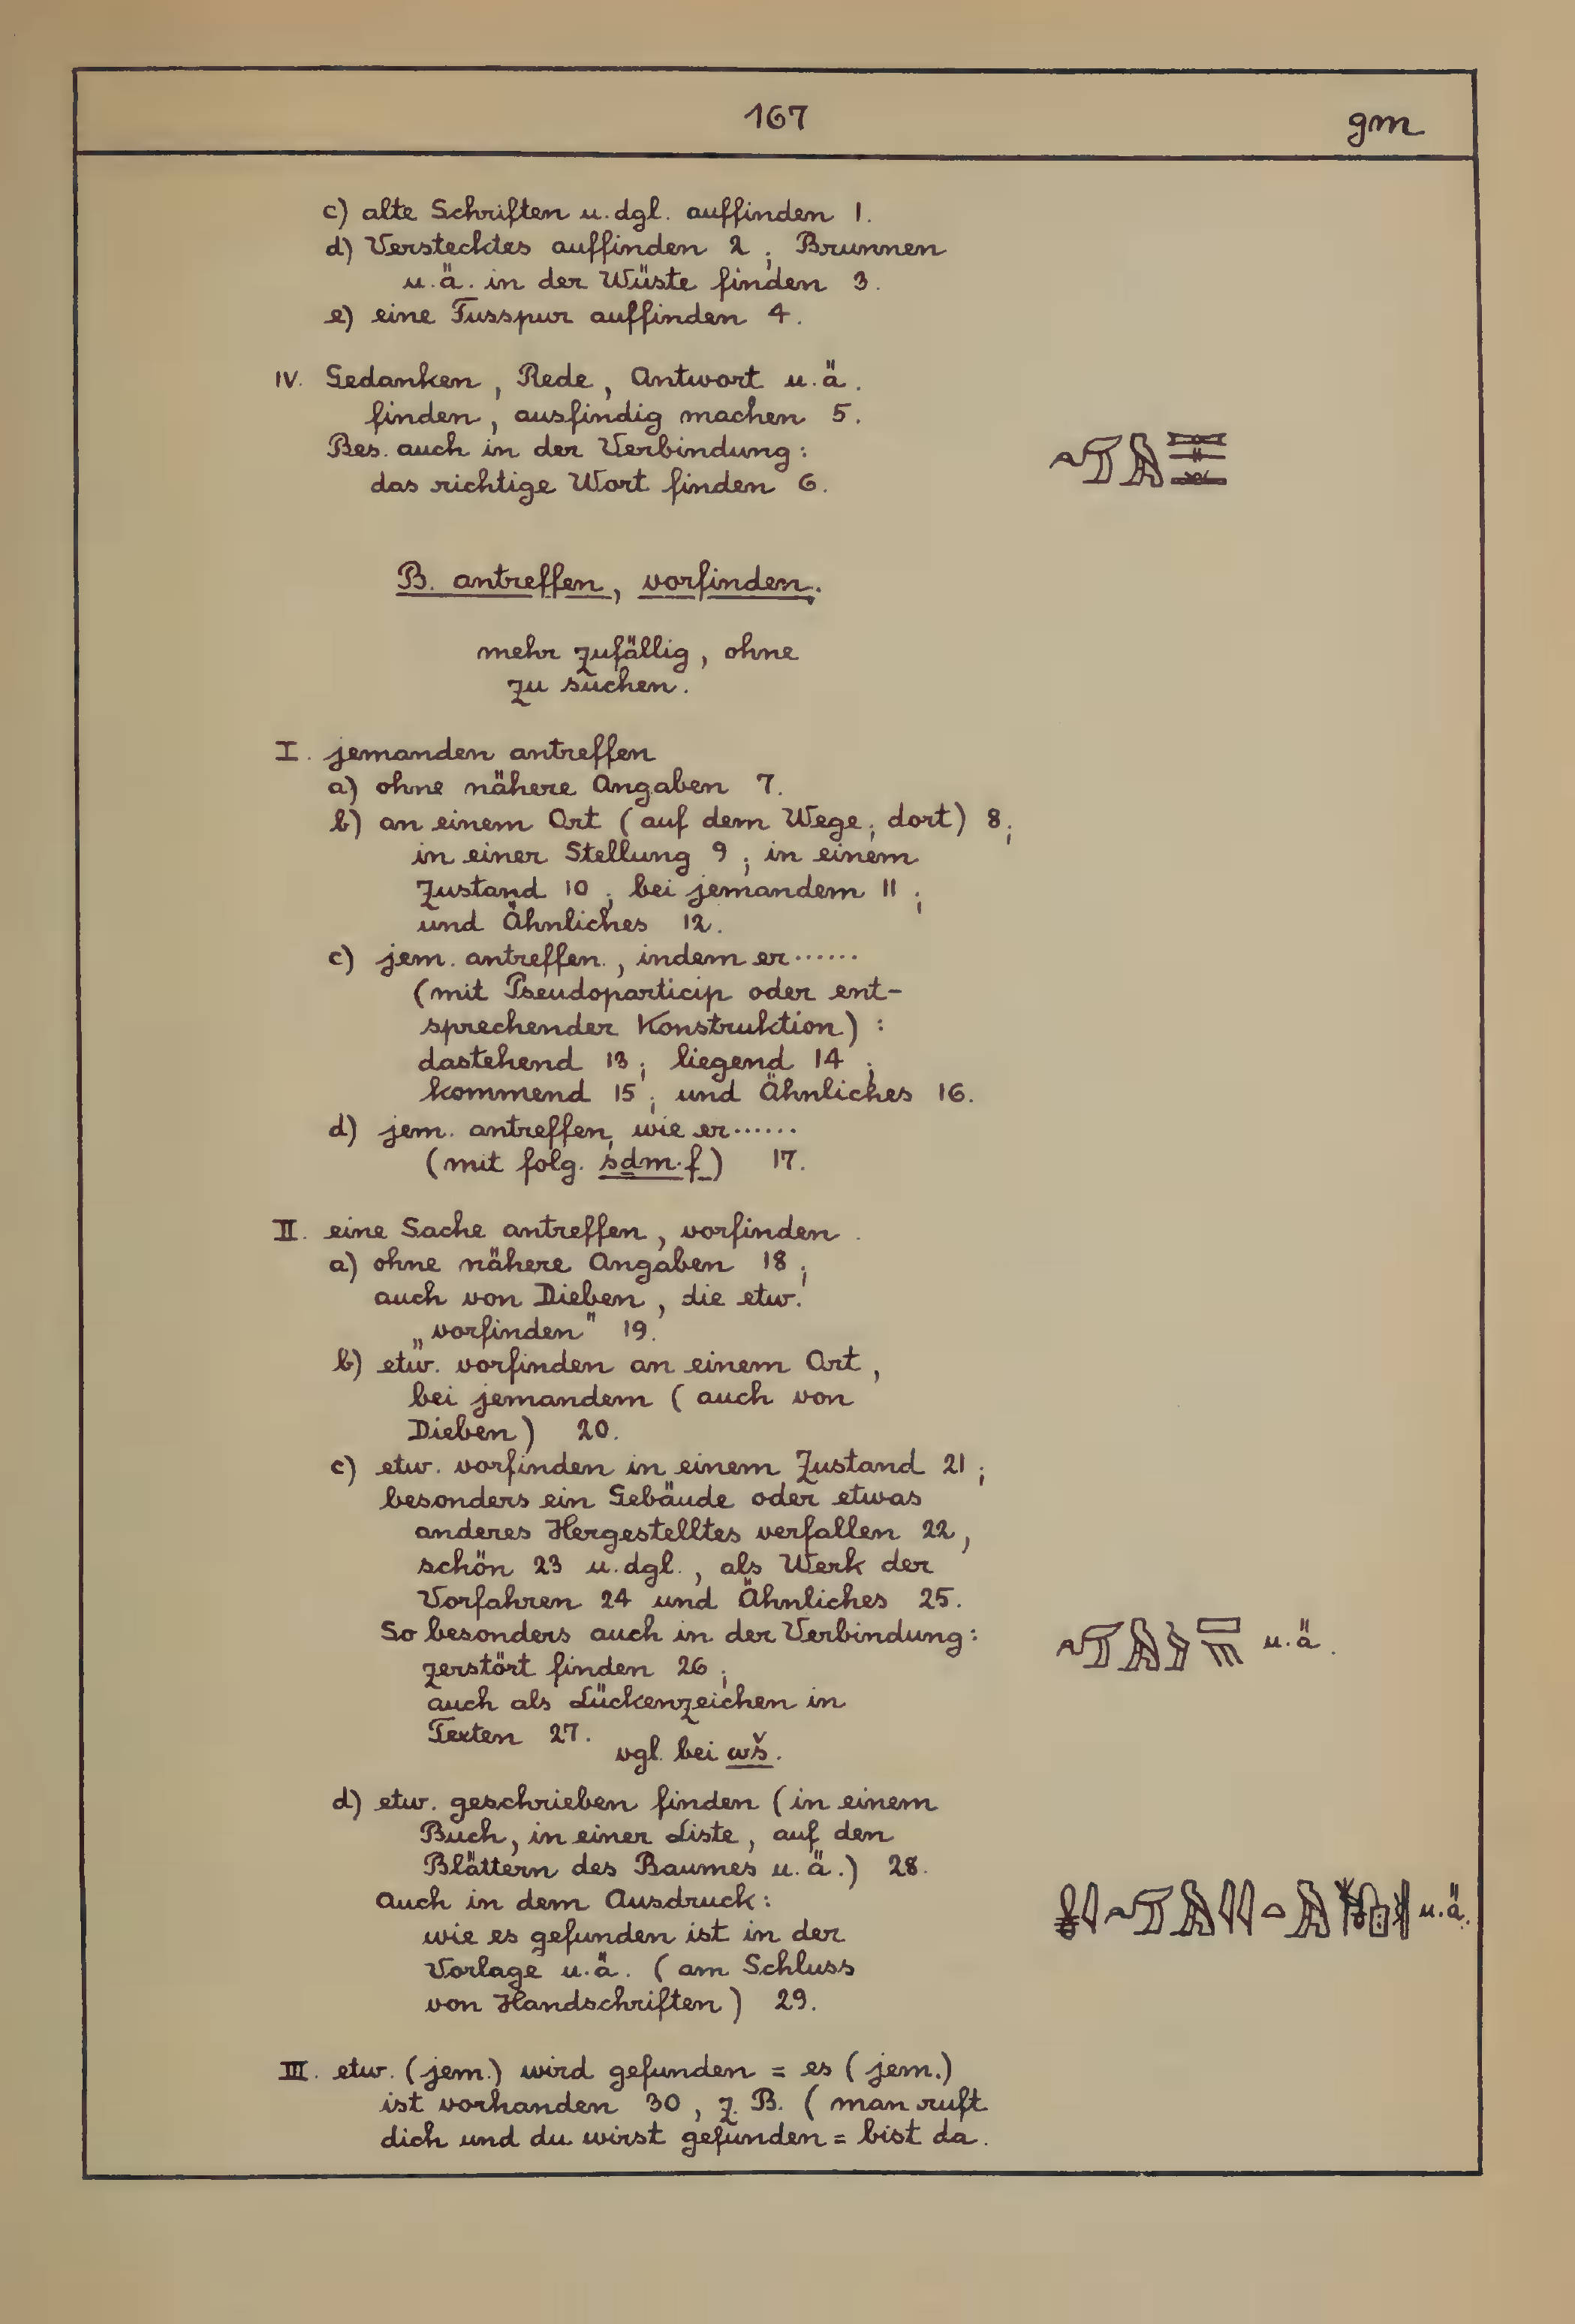 167
gm
c) alte Schriften u. dgl. auffinden 1.
d) Verstecktes auffinden 2 ; Brunnen
u. ä. in der Wüste finden 3.
e) eine Fusspur auffinden 4.
IV. Gedanken, Rede, Antwort u. ä.
finden, ausfindig machen 5.
Bes. auch in der Verbindung:
das richtige Wort finden 6.
B. antreffen, vorfinden;
mehr zufällig, ohne
zu suchen.
I. jemanden antreffen
a) ohne nähere Angaben 7.
b) an einem Ort (auf dem Wege; dort) 8;
in einer Stellung 9 ; in einem
Zustand 10 ; bei jemandem 11 ;
und Ähnliches 12.
c) jem. antreffen, indem er ......
(mit Pseudoparticip oder ent-
sprechender Konstruktion) :
dastehend 13 ; liegend 14 ;
kommend 15 ; und Ähnliches 16.
d) jem. antreffen, wie er ......
(mit folg. sḏm.f) 17.
II. eine Sache antreffen, vorfinden.
a) ohne nähere Angaben 18 ;
auch von Dieben, die etw.
„vorfinden" 19.
b) etw. vorfinden an einem Ort,
bei jemandem (auch von
Dieben) 20.
c) etw. vorfinden in einem Zustand 21 ;
besonders ein Gebäude oder etwas
anderes Hergestelltes verfallen 22,
schön 23 u. dgl., als Werk der
Vorfahren 24 und Ähnliches 25.
So besonders auch in der Verbindung: u. ä.
zerstört finden 26 ;
auch als Lückenzeichen in
Texten 27.
vgl. bei wš.
d) etw. geschrieben finden (in einem
Buch, in einer Liste, auf den
Blättern des Baumes u. ä.) 28.
Auch in dem Ausdruck: u. ä.
wie es gefunden ist in der
Vorlage u. ä. (am Schluss
von Handschriften) 29.
III. etw. (jem.) wird gefunden = es (jem.)
ist vorhanden 30, z. B. (man ruft
dich und du wirst gefunden = bist da.